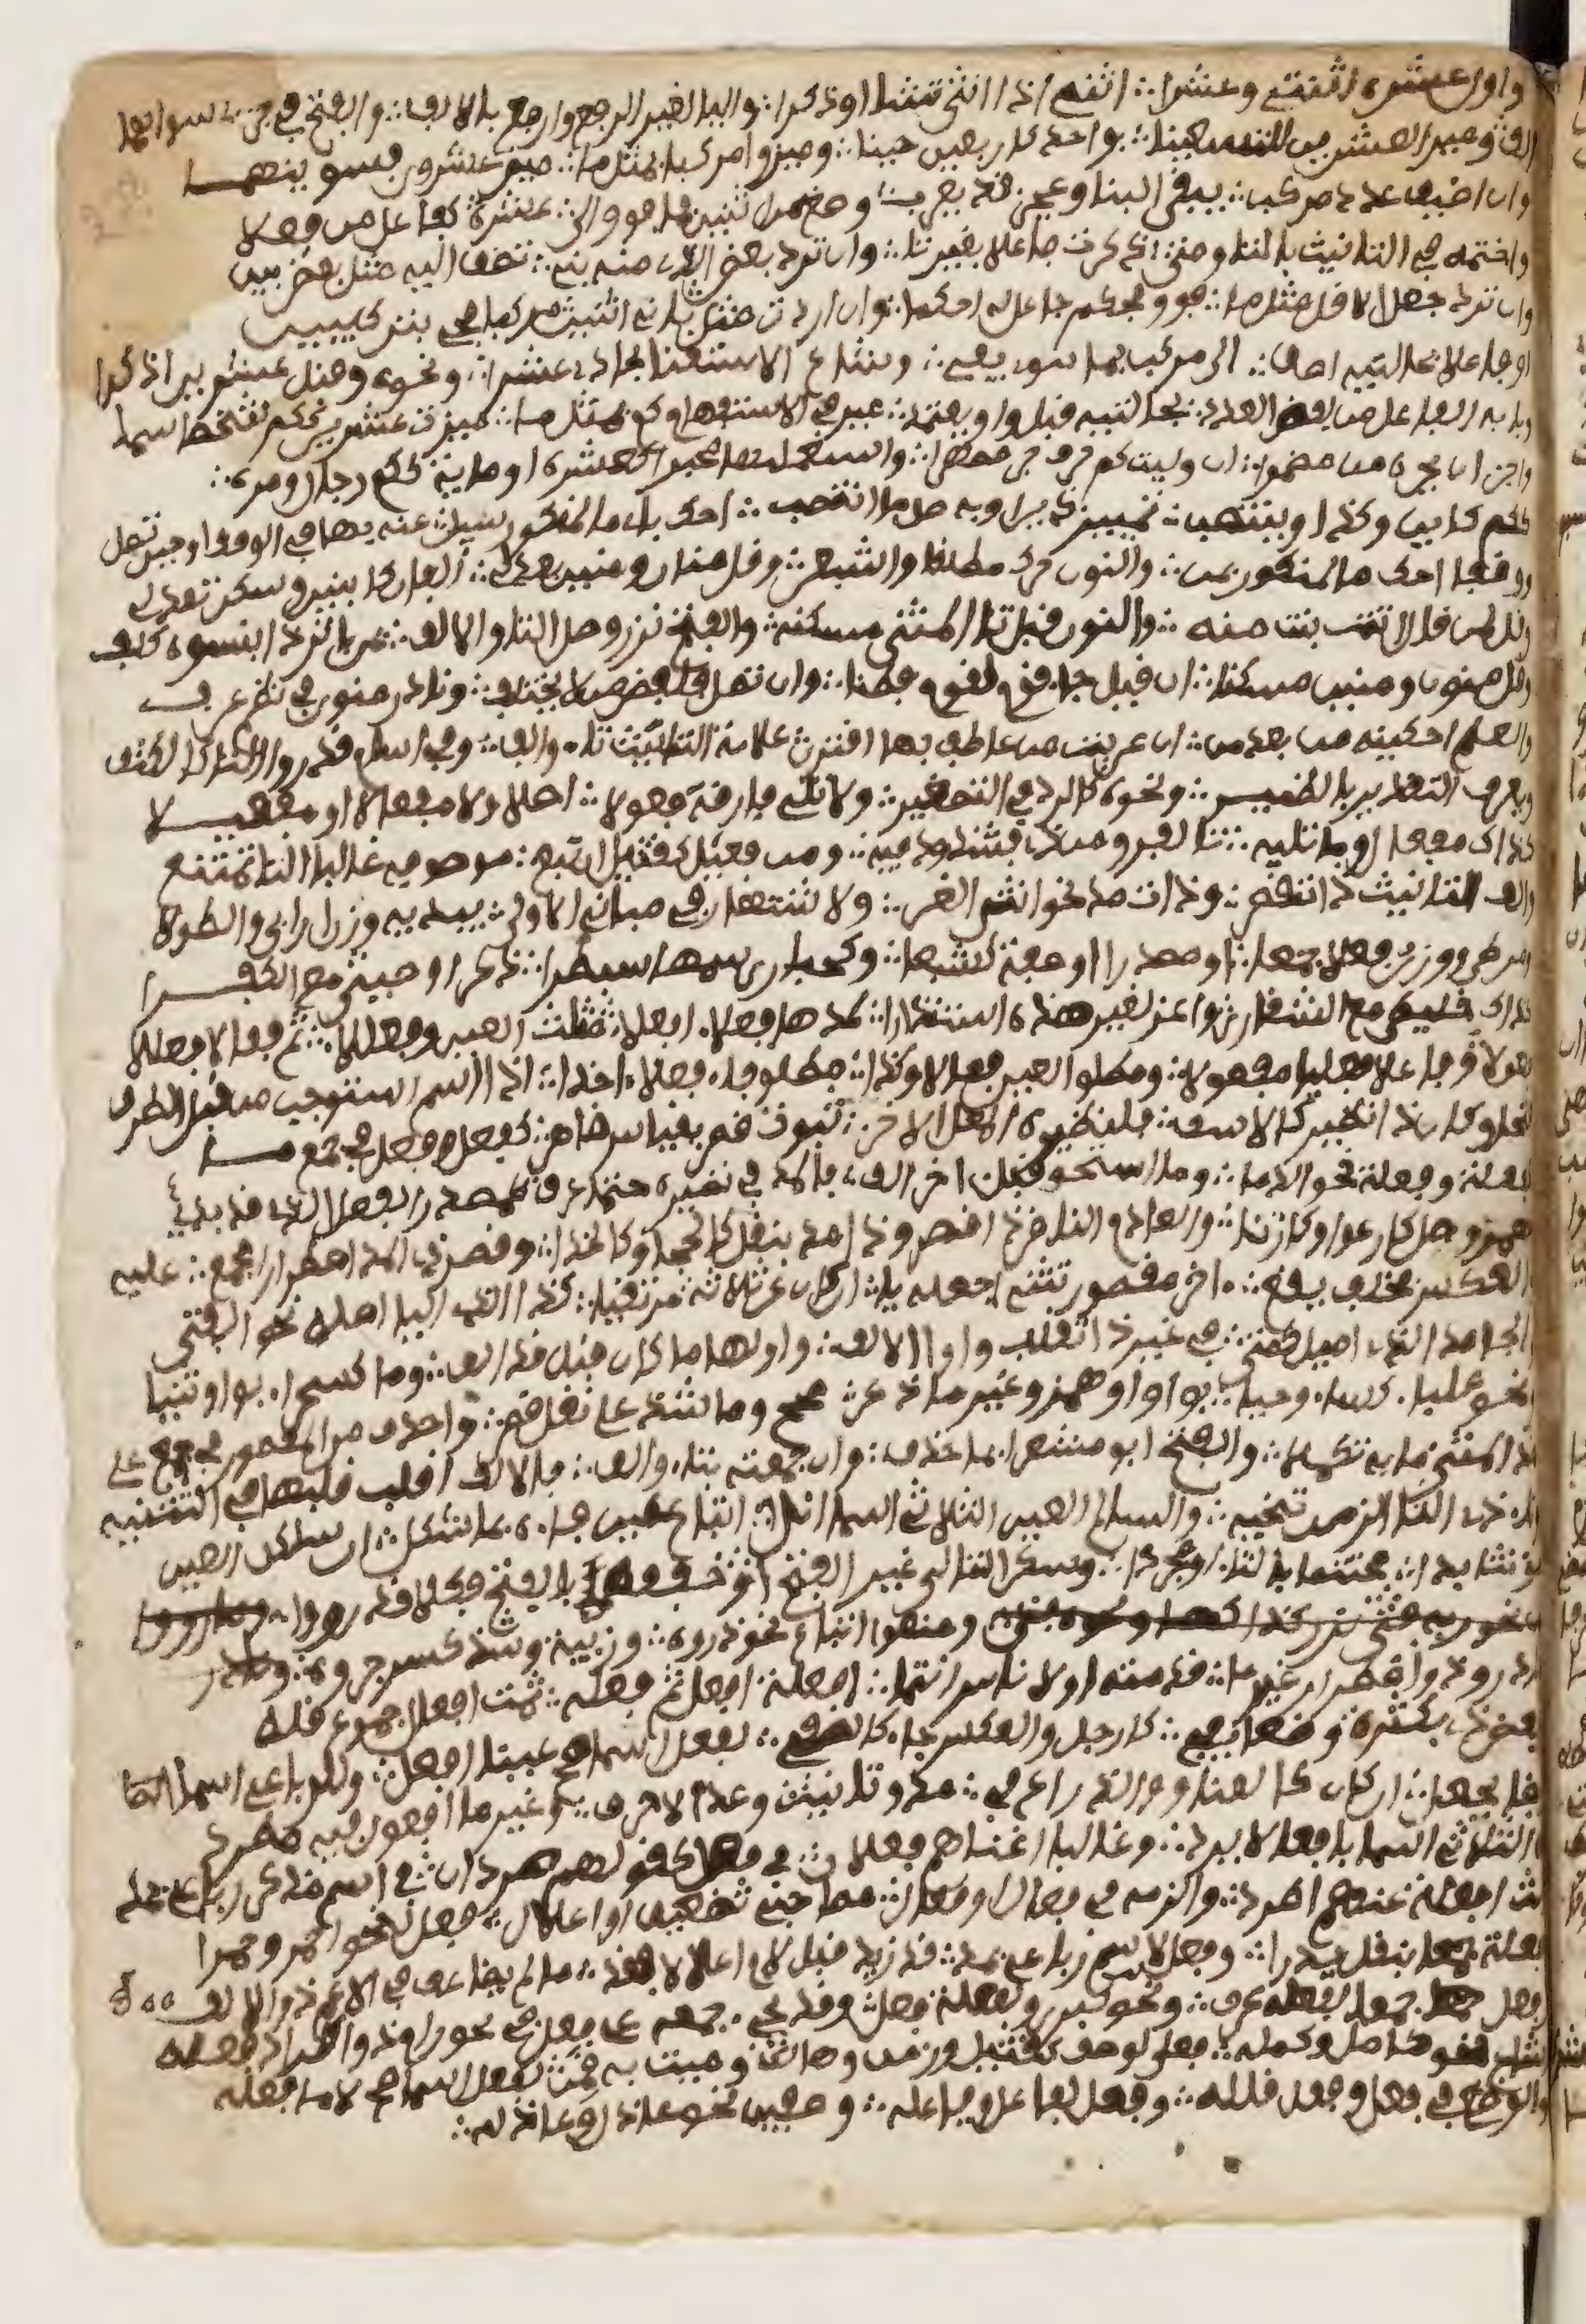 واول عشرة اثنتي وعشرا ∴ اثني اذا انثى تشا او ذكرا ∴ واليا لغير الرفع وارفع بالالف ∴ والفتح في جزءي سواهما
الف وميز العشرين للتسعينا ∴ بواحد كاربعين حينا ∴ وميزوا مركبا بمثل ما ∴ ميز عشرون فسوينهما
وان اضيف عدد مركب ∴ يبقى البنا وعجز قد يعرب ∴ وصغ من اثنين فما فوق الى ∴ عشرة كفاعل من فعلا
واختمه في التانيث بالتا ومتى ∴ ذكرت فاعلا بغير تا ∴ وان ترد بعض الذي منه بني ∴ تضف اليه مثل بعض بين
وان ترد جعل الاقل مثل ما ∴ فوق فحكم جاعل له احكما ∴ وان اردت مثل ثاني اثنين مركبا فجئ بتركيبين
او فاعلا بحالتيه اضف ∴ الى مركب بما تنوي يفي ∴ وشاع الاستغنا بحادي عشرا ∴ ونحوه وقبل عشرين اذكرا
وبابه الفاعل من لفظ العدد ∴ بحالتيه قبل واو يعتمد ∴ ميز في الاستفهام كم بمثل ما ∴ ميزت عشرين ككم شخصا سما
واجز ان تجره من مضمرا ∴ ان وليت كم حرف جر مظهرا ∴ واستعملنها مخبرا كعشرة او ماية ككم رجال او مره ∴
ككم كاين وكذا وينتصب ∴ تمييز ذين او به صل من تصب ∴ احك باي ما لمنكور سيل عنه بها في الوقف او حين تصل
ووقفا احك ما لمنكور بمن ∴ والنون حرك مطلقا واشبعن ∴ وقل منان ومنين بعد لي ∴ الفان بابنين وسكن تعدل
وقل لمن قال اتت بنت منه ∴ والنون قبل تا المثنى مسكنه ∴ والفتح نزر وصل التا والالف ∴ بمن باثر ذا بنسوة كلف
وقل منون ومنين مسكنا ∴ ان قيل جا قوم لقوم فطنا ∴ وان تصل فلفظ من لا يختلف ∴ ونادر منون في نظم عرف
والعلم احكينه من بعد من ∴ ان عريت من عاطف بها اقترن علامة التانيث تاء والف ∴ وفي اسام قدروا التا كالكتف
ويعرف التقدير بالضمير ∴ ونحوه كالرد في التصغير ∴ ولا تلي فارقة فعولا ∴ اصلا ولا مفعالا او مفعيلا
كذاك مفعل وما تليه ∴ تا الفرق من ذي فشذوذ فيه ∴ ومن فعيل كقتيل ان تبع ∴ موصوفه غالبا التا تمتنع
والف التانيث ذات قصر ∴ وذات مد نحو انثى الغر ∴ والاشتهار في مباني الاولى ∴ يبديه وزن اربى والطولى
ومرطى ووزن فعلى جمعا ∴ او مصدرا او صفة كشبعا ∴ وكحبارى سمهى سبطرا ∴ ذكرى وحثيثى مع الكفرا
كذاك خليطى مع الشقارى واعز لغير هذه استندارا ∴ لمدها فعلاء افعلاء ∴ مثلث العين وفعللاء ∴ ثم فعالا فعللا
فاعولا وفاعلاء فعليا مفعولا ∴ ومطلق العين فعالا وكذا ∴ مطلق فاء فعلاء اخذا ∴ اذا اسم استوجب من قبل الطرف
فتحا وكان ذا نظير كالاسف ∴ فلنظيره المعل الاخر ∴ ثبوت قصر بقياس ظاهر ∴ كفعل وفعل في جمع ما
كفعلة وفعلة نحو الدما ∴ وما استحق قبل اخر الف ∴ فالمد في نظيره حتما عرف كمصدر الفعل الذي قد بدئي
بهمز وصل كارعوا وكارتا ∴ والعادم النظير ذا قصر وذا مد بنقل كالحجا وكالحذا ∴ وقصر ذي المد اضطرارا مجمع ∴ عليه
والعكس بخلف يقع ∴ اخر مقصور تثني اجعله يا ∴ ان كان عن ثلاثة مرتقيا ∴ كذا الذي اليا اصله نحو الفتى
والجامد الذي اميل كمتى ∴ في غير ذا تقلب واوا الالف ∴ واولها ما كان قبل قد الف ∴ وما كصحراء بواو ثنيا
ونحو علبا كساء وحيا ∴ بواو او همز وغير ما ذكر ∴ صحح وما شذ على نقل قصر ∴ واحذف من المقصور في جمع على
حد المثنى ما به تكملا ∴ والفتح ابق مشعرا بما حذف ∴ وان جمعته بتاء والف ∴ فالالف اقلب قلبها في التثنيه
وتاء ذي التا الزمن تنحيه ∴ والسالم العين الثلاثي اسما انل ∴ اتباع عين فاءه بما شكل ∴ ان ساكن العين
مونثا بدا ∴ مختتما بالتا او مجردا ∴ وسكن التالي غير الفتح او خففه بالفتح فكلا قد رووا
ومنعوا اتباع نحو ذروه ∴ وزبية وشذ كسر جروه ∴ ونادر
او ذو اضطرار غير ما ∴ قدمته او لاناس انتما ∴ افعلة افعل ثم فعله ∴ ثمت افعال جموع قله
وبعض ذي بكثرة وضعا يفي ∴ كارجل والعكس جاء كالصفي ∴ لفعل اسما صح عينا افعل ∴ وللرباعي اسما ايضا
يجعل ∴ ان كان كالعناق والذراع في ∴ مد وتانيث وعد الاحرف ∴ وغير ما افعل فيه مطرد
من الثلاثي اسما بافعال يرد ∴ وغالبا اغناهم فعلان ∴ في فعل كقولهم صردان ∴ في اسم مذكر رباعي بمد
ثالث افعلة عنهم اطرد ∴ والزمه في فعال او فعال ∴ مصاحبي تضعيف او اعلال ∴ فعل لنحو احمر وحمرا
وفعلة جمعا بنقل يدرا ∴ وفعل لاسم رباعي بمد ∴ قد زيد قبل لام اعلالا فقد ∴ ما لم يضاعف في الاعم ذو الالف
وفعل جمعا لفعلة عرف ∴ ونحو كبرى ولفعلة فعل ∴ وقد يجي جمعه على فعل في نحو رام ذو اطراد فعله
وشاع نحو كامل وكمله ∴ فعلى لوصف كقتيل وزمن وهالك وميت به قمن لفعل اسما صح لاما فعله
والوضع في فعل وفعل قلله ∴ وفعل لفاعل وفاعله ∴ وصفين نحو عاذل وعاذله ∴